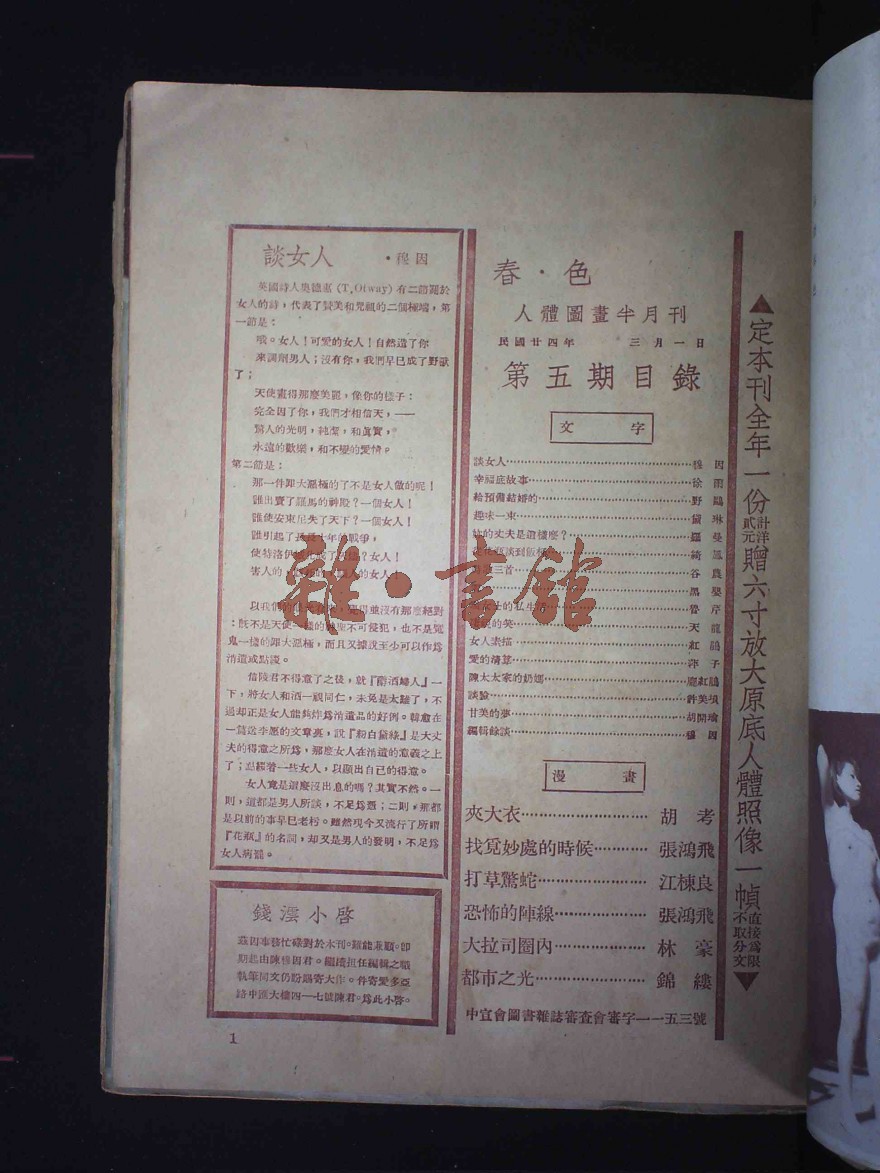 ▲定本刊全年一份計洋貳元贈六寸放大原底人體照像一幀直接爲限不取分文▼
春・色
人體圖畫半月刊
民國廿四年 三月一日
第五期目錄
文字
談女人 穆因
幸福底故事 徐雨
給預備結婚的 野鷗
趣味一束 琳
的丈夫是這樣麼? 曼
談到飯
三首 谷農
黑嬰
士的私生活 魯岸
的笑 天龍
女人素描 紅鵑
愛的清算 萍子
陳太太家的奶媽 龐紅鵑
談臉 許美塤
甘美的夢 胡開瑜
編輯餘談 穆因
漫畫
夾大衣 胡考
找覓妙處的時候 張鴻飛
打草驚蛇 江棟良
恐怖的陣線 張鴻飛
大拉司圈內 林豪
都市之光 錦縷
中宣會圖書雜誌審查會審字一一五三號
談女人 ・穆因
英國詩人奧德惠(T.Otway)有二節關於
女人的詩,代表了贊美和咒詛的二個極端,第
一節是:
哦。女人!可愛的女人!自然造了你
來調劑男人;沒有你,我們早已成了野獸
了;
天使畫得那麼美麗,像你的樣子:
完全因了你,我們才相信天,——
驚人的光明,純潔,和眞實,
永遠的歡樂,和不變的愛情。
第二節是:
那一件卸大惡極的了不是女人做的呢!
誰出賣了羅馬的神殿?一個女人!
誰使安東尼失了天下?一個女人!
誰引起了長十年的戰爭,
使特洛伊 ?女人!
害人的 人的女人
以我們的 覺得並沒有那麼絕對
:旣不是天使一樣的神聖不可侵犯,也不是冤
鬼一樣的卸大惡極,而且又據說至少可以作爲
消遣或點護。
信陵君不得意了之後,就『醇酒婦人』一
下,將女人和酒一視同仁,未免是太難了,不
過却正是女人能夠炸爲消遣品的好例。韓愈在
一篇送李愿的文章裏,說『粉白黛綠』是大丈
夫的得意之所爲,那麼女人在消遣的意義之上
了;點綴着一些女人,以顯出自已的得意。
女人竟是這麼沒出息的嗎?其實不然。一
則,這都是男人所談,不足爲憑;二則,那都
是以前的事早已老朽。雖然現今又流行了所謂
『花瓶』的名詞,却又是男人的發明,不足爲
女人病罷。
錢澐小啓
茲因事務忙碌對於本刊。難能兼顧。卽
期起由陳穆因君。繼續担任編輯之職
執筆同文仍盼賜寄大作。件寄愛多亞
路中滙大樓四一七號陳君。爲此小啓。
1
雜・書館